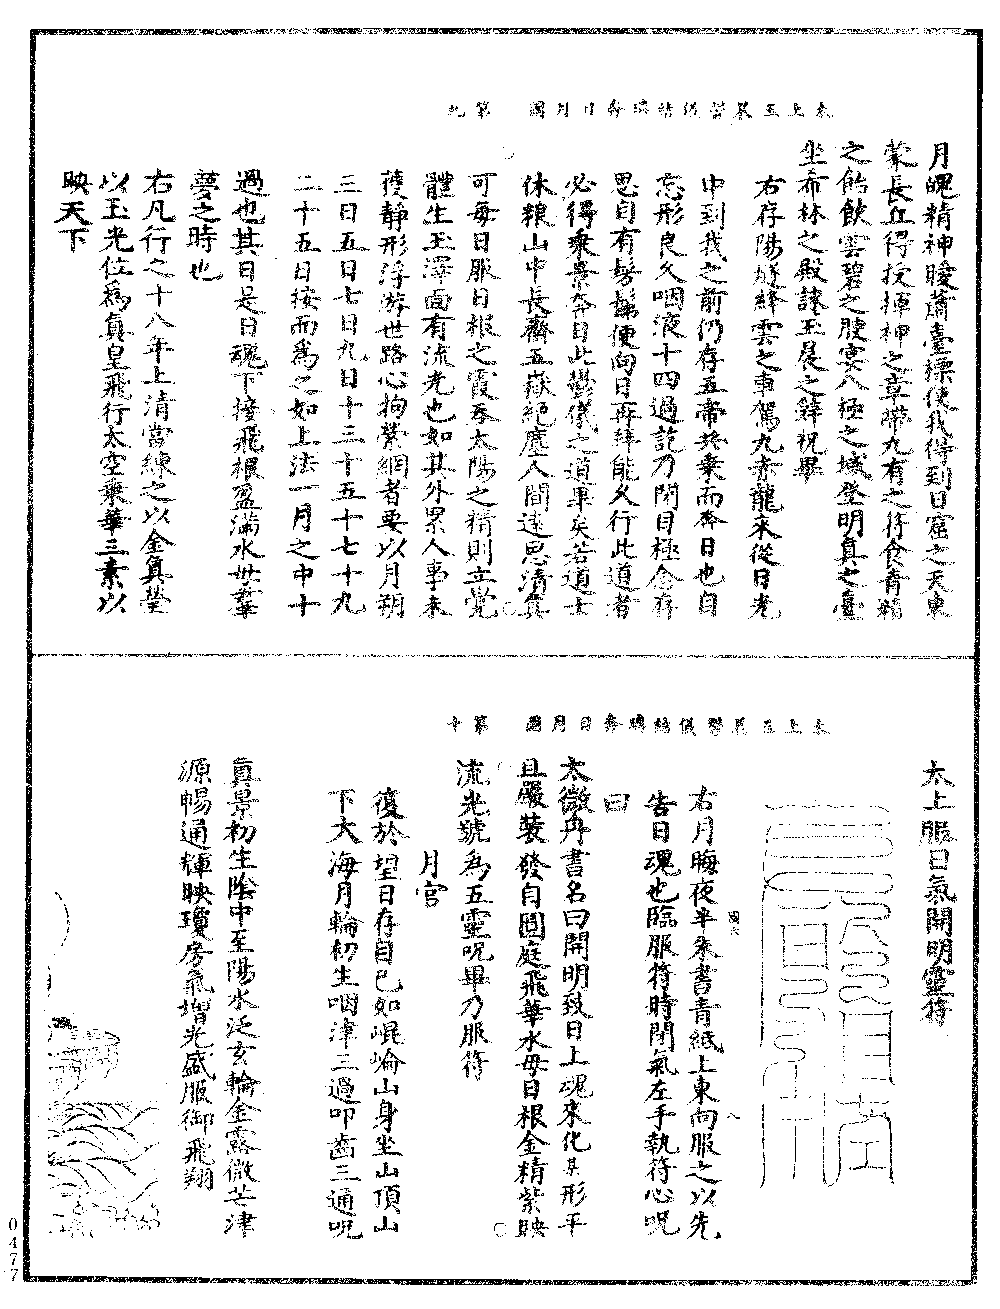 太上玉晨鬱儀結璘奔日月圖　第九
月魄精神曖蕭臺標使我得到日窟之天東
蒙長丘得授揮神之章帶九有之符食青精
之飴飲雲碧之腴宴八極之城登明真之臺
坐希林之殿諫玉晨之鮮祝畢
右存陽燧絳雲之車駕九赤龍來從日光
中到我之前仍存五帝共乘而奔日也自
忘形良久咽液十四過訖乃閉目極念存
思自有髣髴便向日再拜能久行此道者
必得乘景奔日此鬱儀之道畢矣若道士
休粮山中長齋五嶽絕塵人間遠思清真
可每日服日根之霞吞太陽之精則立覺
體生玉澤面有流光也如其外累人事未
獲靜形浮游世路心拘縈網者要以月朔
三日五日七日九日十三十五十七十九
二十五日按而為之如上法一月之中十
過也其日是日魂下接飛根盈滿水母羣
夢之時也
右凡行之十八年上清當練之以金真瑩
以玉光位為真皇飛行太空乘華三素以
映天下
太上玉晨鬱儀結璘奔日月圖　第十
太上服日氣開明靈符
右月晦夜半朱書青紙上東向服之以先
告日魂也臨服符時閉氣左手執符心呪
曰
太微丹書名曰開明致日上魂來化某形平
旦嚴裝發自圓庭飛華水母日根金精紫映
流光號為五靈呪畢乃服符
月宮
復於望日存自己如崐崘山身坐山頂山
下大海月輪初生咽津三過叩齒三通呪
真景初生陰中至陽水泛玄輪金露微芒津
源暢通輝映瓊房氣增光盛服御飛翔
0477